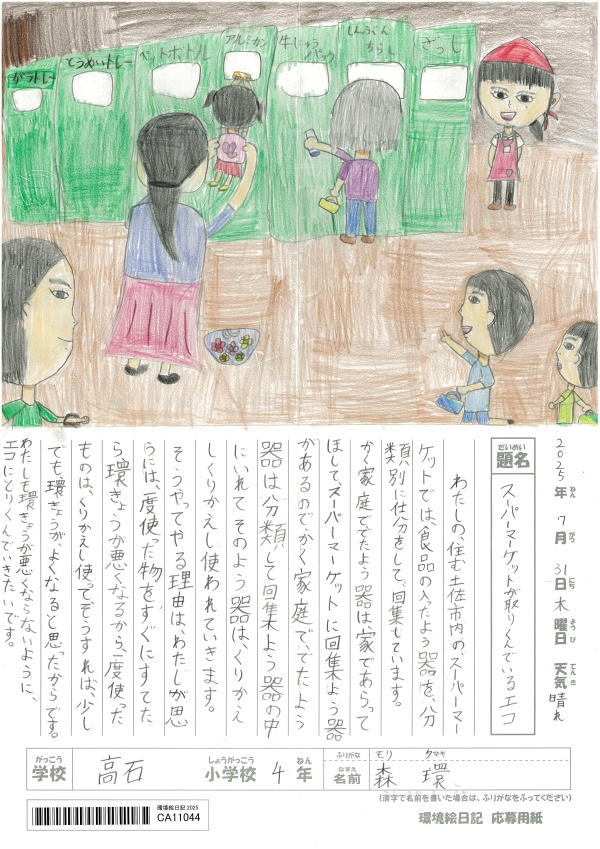 がラトレー
とうめいトレー
ペットボトル
アルミカン
牛にゅうパック
しんぶんちらし
ざっし
2025年ねん 7月がつ 31日にち 木曜日ようび 天気てんき 晴れ
題名だいめい スーパーマーケットが取りくんでいるエコ
わたしの、住む土佐市内の、スーパーマー
ケットでは、食品の入ったよう器を、分
類別に仕分をして、回集しています。
かく家庭ででたよう器は、家であらって
ほして、スーパーマーケットに回集よう器
があるのでかく家庭で、でたよう
器は分類して回集よう器の中
にいれてそのよう器は、くりかえ
しくりかえし使われていきます。
そうやってやる理由は、わたしが思
うには、一度使った物をすぐにすてた
ら、環きょうが悪くなるから、一度使った
ものは、くりかえし使ってそうすれば、少し
でも、環きょうが、よくなると思ったからです。
わたしも環きょうが悪くならないように、
エコにとりくんでいきたいです。
学校がっこう 高石 小学校しょうがっこう 4年ねん
ふりがな モリ タマキ
名前なまえ 森 環
(漢字で名前を書いた場合は、ふりがなをふってください)
環境絵日記 2025
CA11044
環境絵日記 応募用紙